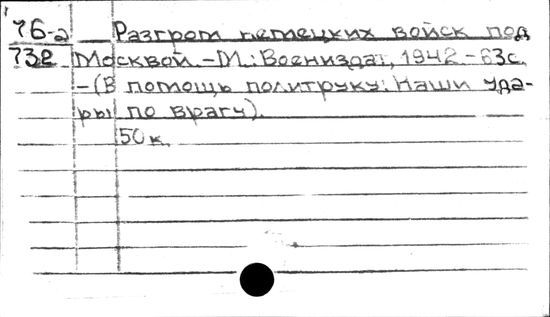 76-2 Разгром немецких войск под
732 Москвой.-М.: Воениздат, 1942.-63с.
-(В помощь политруку: Наши уда-
ры по врагу).
50к.